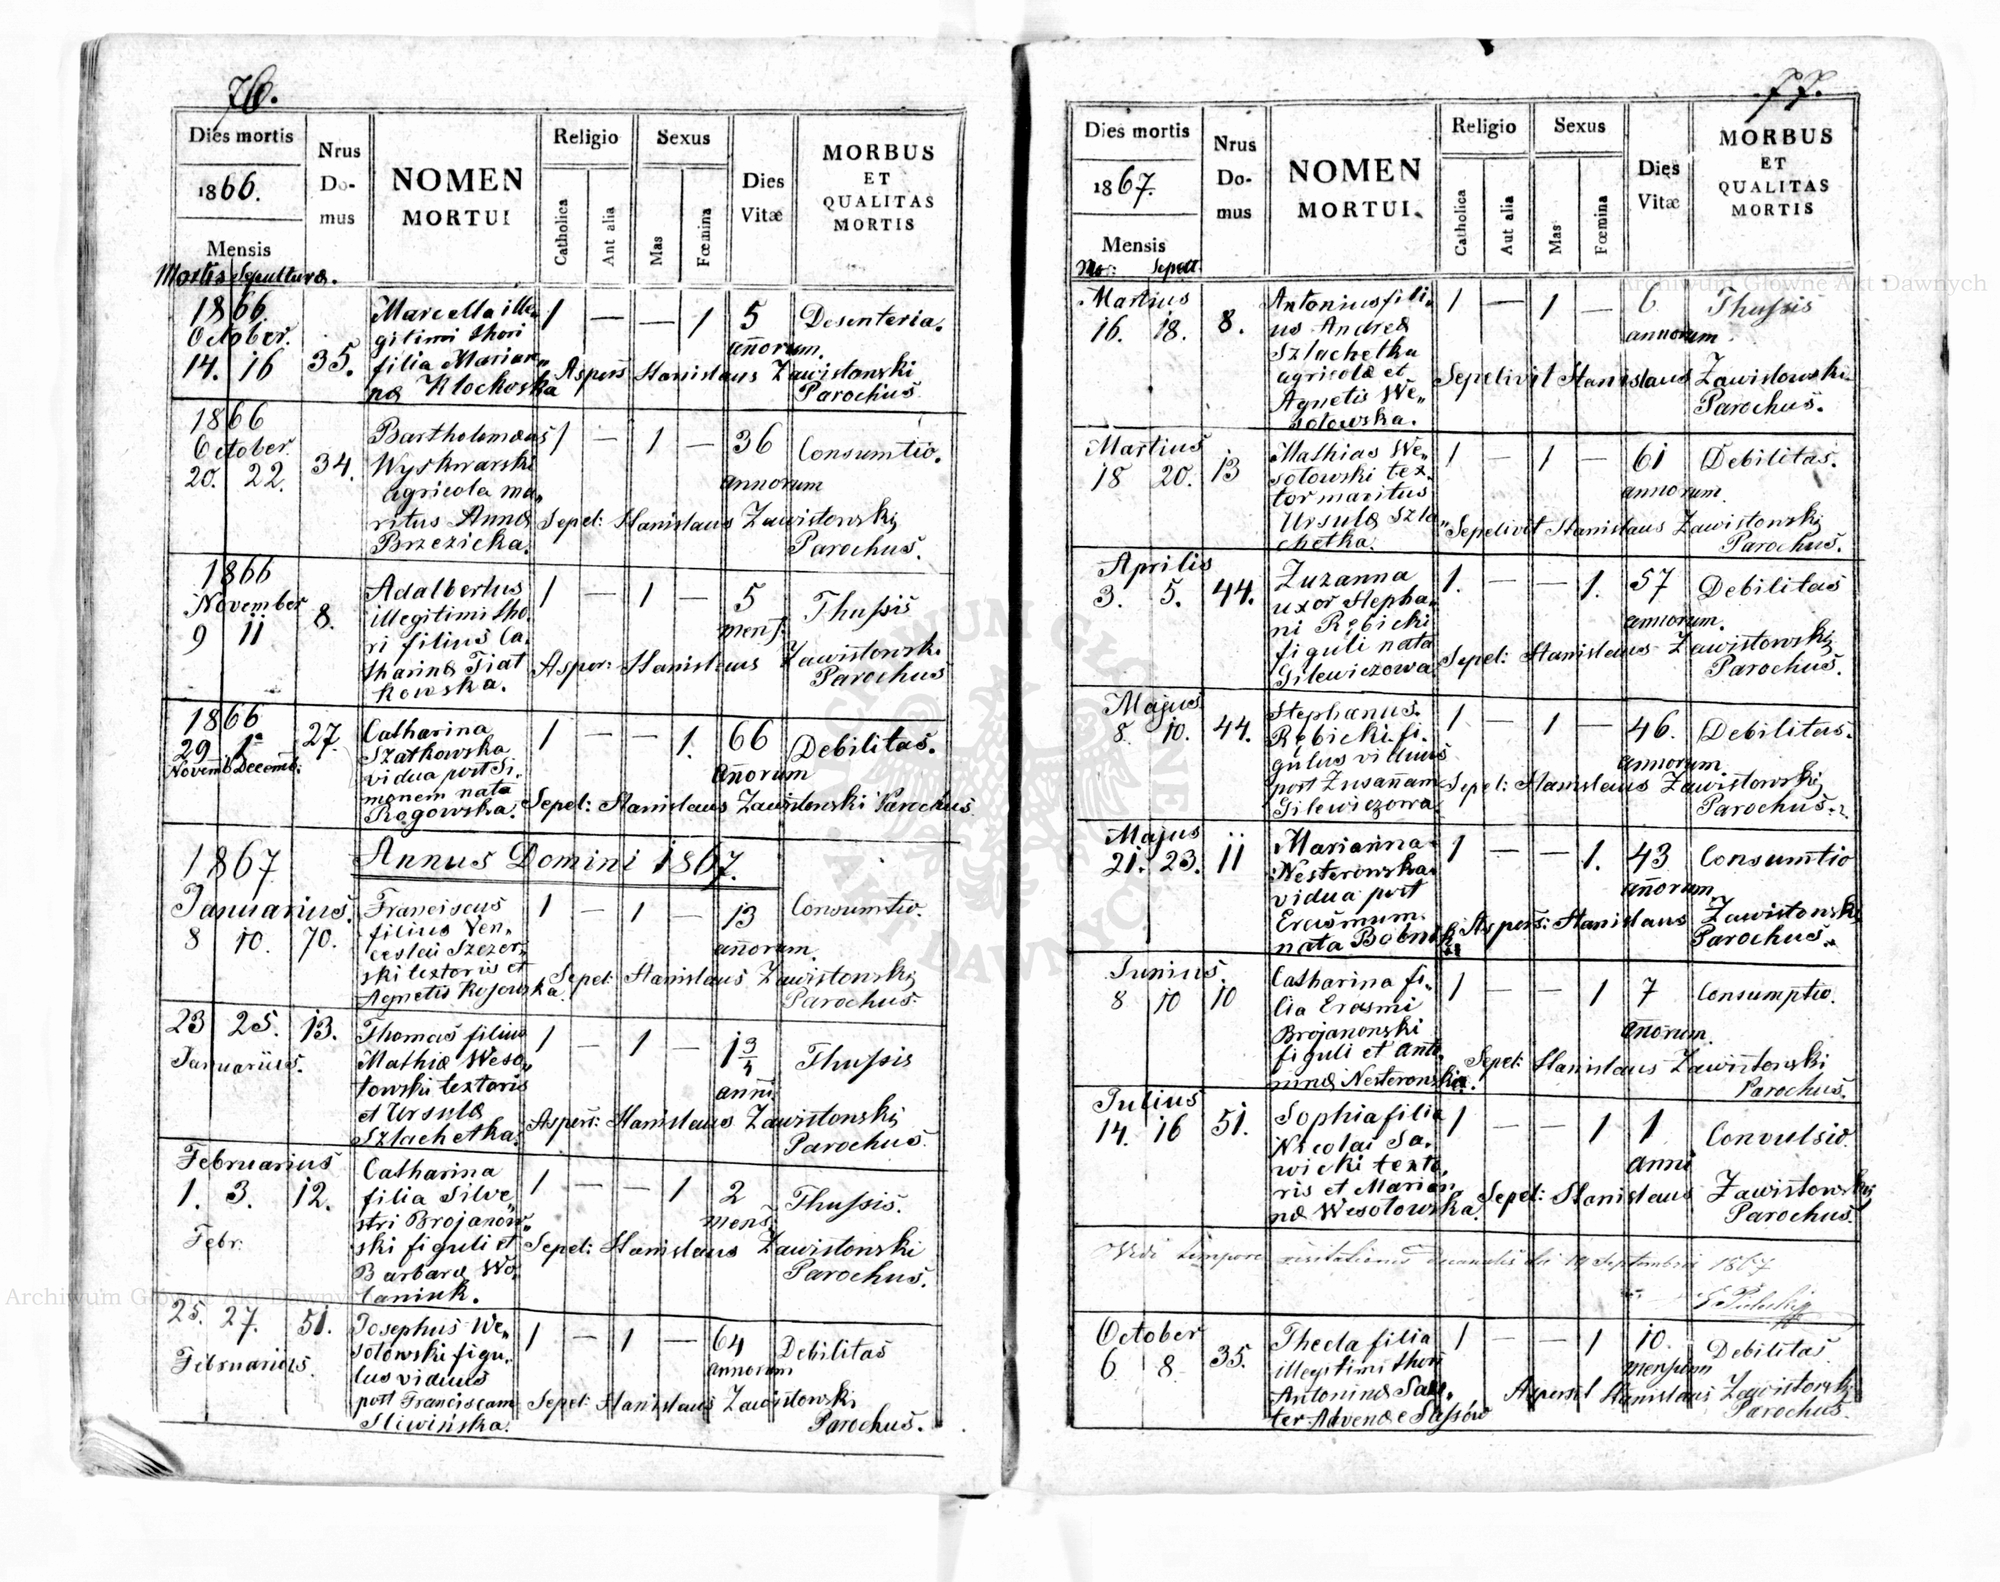 76.
Dies mortis
1866.
Mensis
Mortis Sepulturæ.
Nrus
Do-
mus
NOMEN
MORTUI
Religio
Catholica
Ant alia
Sexus
Mas
Fœmina
Dies
Vitæ
MORBUS
ET
QUALITAS
MORTIS
1866.
October.
14. 16
35.
Marcella ille„
gitimi thori
filia Marian„
næ Kłochoska
1 — — 1 5
añorum.
Desenteria.
Aspers Stanislaus Zawistowski
Parochus
1866
October.
20. 22.
34.
Bartholomæus
Wyskwarski
agricola ma„
ritus Annæ
Brzezicka.
1 — 1 — 36
annorum
Consumtio.
Sepel: Stanislaus Zawistowski
Parochus.
1866
November
9 11
8.
Adalbertus
illegitimi tho.
ri filius Ca.
tharinæ Fiat
kowska.
1 — 1 — 5
mens.
Thussis
Asper: Stanislaus Zawistowski
Parochus
1866
29 1ª
Novemb Decemb.
27
Catharina
Szatkowska
vidua post Si.
monem nata
Rogowska.
1 — — 1. 66
añorum
Debilitas.
Sepel: Stanislaus Zawistowski Parochus.
1867
Annus Domini 1867.
Januarius.
8 10. 70.
Franciscus
filius Ven„
ceslai Szczer„
ski textoris et
Agnetis Kojowska.
1 — 1 — 13
añorum.
Consumtio.
Sepel: Stanislaus Zawistowski
Parochus.
23 25. 13.
Januariüs.
Thomas filius
Mathiæ Weso„
łowski textoris
et Ursulæ
Szlachetka.
1 — 1 — 1 3/4
anni
Thussis
Aspers: Stanislaus Zawistowski
Parochus.
Februarius
1. 3. 12.
Febr:
Catharina
filia Silve„
stri Brojanow„
ski figuli et
Barbaræ Wo.
laniuk.
1 — — 1 2
mens.
Thussis.
Sepel: Stanislaus Zawistowski
Parochus.
25. 27. 51.
Februarius.
Josephus We„
sołowski figu„
lus viduus
post Franciscam
Sliwińska.
1 — 1 — 64
annorum
Debilitas
Sepel: Stanislaus Zawistowski
Parochus.
77.
Dies mortis
1867.
Mensis
Mor: Sepult.
Nrus
Do-
mus
NOMEN
MORTUI.
Religio
Catholica
Aut alia
Sexus
Mas
Fœmina
Dies
Vitæ
MORBUS
ET
QUALITAS
MORTIS
Martius
16. 18. 8.
Antonius fili„
us Andreæ
Szlachetka
agricolæ et
Agnetis We„
sołowska.
1 — 1 — 6
annorum.
Thussis
Sepelivit Stanislaus Zawistowski
Parochus.
Martius
18 20. 13
Mathias We„
sołowski tex.
tor maritus
Ursulæ Szla„
chetka.
1 — 1 — 61
annorum.
Debilitas.
Sepelivit Stanislaus Zawistowski
Parochus.
Aprilis
3. 5. 44.
Zuzanna
uxor Stepha„
ni Rębicki
figuli nata
Gilewiczowa
1. — — 1. 57
annorum.
Debilitas
Sepel: Stanislaus Zawistowski
Parochus.
Majus
8. 10. 44.
Stephanus.
Rębicki fi„
gulus viduus
post Zusañam
Gilewiczowa
1 — 1 — 46.
annorum.
Debilitas.
Sepel: Stanislaus Zawistowski
Parochus.
Majus
21. 23. 11
Marianna
Nesterowska
vidua post
Erasmum
nata Bobnik
1 — — 1. 43
añorum
Consumtio
Aspers: Stanislaus Zawistowski
Parochus.
Junius.
8 10 10
Catharina fi„
lia Erasmi
Brojanowski
figuli et Anto„
ninæ Nesterowska.
1 — — 1 7
añorum.
Consumptio.
Sepel: Stanislaus Zawistowski
Parochus.
Julius
14. 16 51.
Sophia filia
Nicolai Sa„
wicki texto„
ris et Marian
næ Wesołowska.
1 — — 1 1
anni
Convulsio.
Sepel: Stanislaus Zawistowski
Parochus.
Vidi tempore visitationis decanalis die 19 Septembris 1867
October
6 8. 35.
Thecla filia
illegitimi thori
Antoninæ
ter Advenæ e
1 — — 1 10.
mensium
Debilitas
Aspersit Stanislaus Zawistowski
Parochus.
Archiwum Główne Akt Dawnych
Archiwum Główne Akt Dawnych
ARCHIWUM GŁÓWNE
AKT DAWNYCH